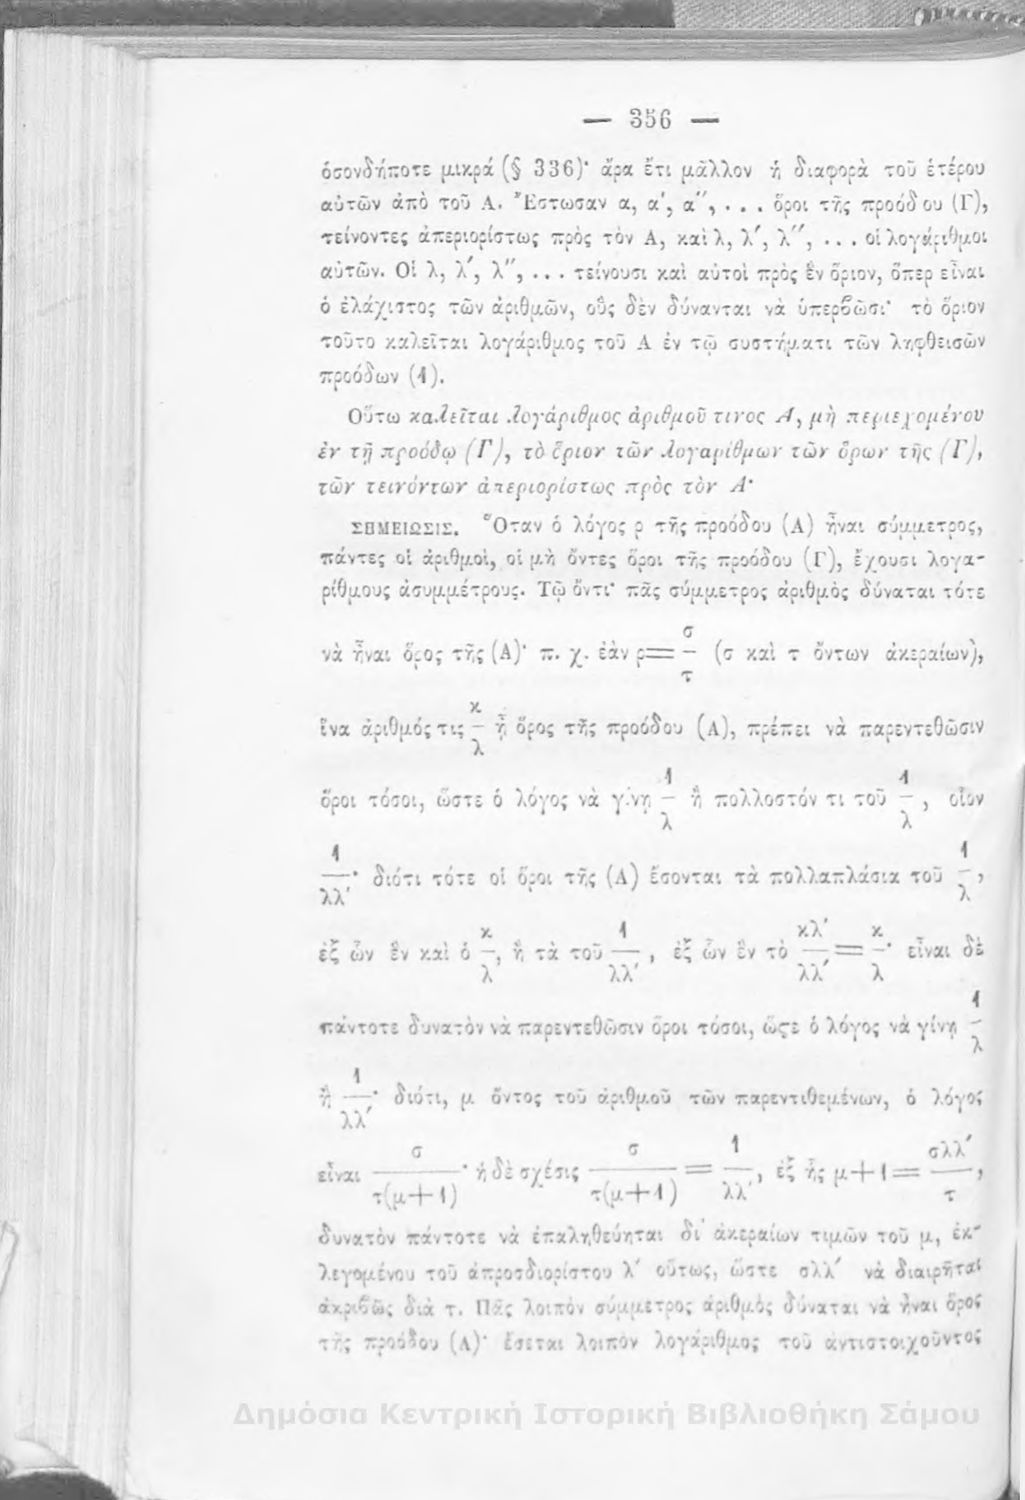 — 356 —
ὁσονδήποτε μικρά (§ 336)· ἄρα ἔτι μᾶλλον ἡ διαφορὰ τοῦ ἑτέρου
αὐτῶν ἀπὸ τοῦ Α. Ἔστωσαν α, α′, α″, . . . ὅροι τῆς προόδου (Γ),
τείνοντες ἀπεριορίστως πρὸς τὸν Α, καὶ λ, λ′, λ″, . . . οἱ λογάριθμοι
αὐτῶν. Οἱ λ, λ′, λ″, . . . τείνουσι καὶ αὐτοὶ πρὸς ἓν ὅριον, ὅπερ εἶναι
ὁ ἐλάχιστος τῶν ἀριθμῶν, οὓς δὲν δύνανται νὰ ὑπερβῶσι· τὸ ὅριον
τοῦτο καλεῖται λογάριθμος τοῦ Α ἐν τῷ συστήματι τῶν ληφθεισῶν
προόδων (1).
Οὕτω καλεῖται λογάριθμος ἀριθμοῦ τινος Α, μὴ περιεχομένου
ἐν τῇ προόδῳ (Γ), τὸ ὅριον τῶν λογαρίθμων τῶν ὅρων τῆς (Γ),
τῶν τεινόντων ἀπεριορίστως πρὸς τὸν Α·
ΣΗΜΕΙΩΣΙΣ. Ὅταν ὁ λόγος ρ τῆς προόδου (Α) ἦναι σύμμετρος,
πάντες οἱ ἀριθμοὶ, οἱ μὴ ὄντες ὅροι τῆς προόδου (Γ), ἔχουσι λογα-
ρίθμους ἀσυμμέτρους. Τῷ ὄντι· πᾶς σύμμετρος ἀριθμὸς δύναται τότε
νὰ ἦναι ὅρος τῆς (Α)· π. χ. ἐὰν ρ= σ/τ (σ καὶ τ ὄντων ἀκεραίων),
ἵνα ἀριθμός τις κ/λ ᾖ ὅρος τῆς προόδου (Α), πρέπει νὰ παρεντεθῶσιν
ὅροι τόσοι, ὥστε ὁ λόγος νὰ γίνῃ 1/λ ἢ πολλοστόν τι τοῦ 1/λ, οἷον
1/λλ′· διότι τότε οἱ ὅροι τῆς (Α) ἔσονται τὰ πολλαπλάσια τοῦ 1/λ,
ἐξ ὧν ἓν καὶ ὁ κ/λ, ἢ τὰ τοῦ 1/λλ′, ἐξ ὧν ἓν τὸ κλ′/λλ′ = κ/λ· εἶναι δὲ
πάντοτε δυνατὸν νὰ παρεντεθῶσιν ὅροι τόσοι, ὥςε ὁ λόγος νὰ γίνῃ 1/λ
ἢ 1/λλ′· διότι, μ ὄντος τοῦ ἀριθμοῦ τῶν παρεντιθεμένων, ὁ λόγος
εἶναι σ/τ(μ+1)· ἡ δὲ σχέσις σ/τ(μ+1) = 1/λλ′, ἐξ ἧς μ+1= σλλ′/τ,
δυνατὸν πάντοτε νὰ ἐπαληθεύηται δι' ἀκεραίων τιμῶν τοῦ μ, ἐκ-
λεγομένου τοῦ ἀπροσδιορίστου λ′ οὕτως, ὥστε σλλ′ νὰ διαιρῆται
ἀκριβῶς διὰ τ. Πᾶς λοιπὸν σύμμετρος ἀριθμὸς δύναται νὰ ἦναι ὅρος
τῆς προόδου (Α)· ἔσεται λοιπὸν λογάριθμος τοῦ ἀντιστοιχοῦντος
Δημόσια Κεντρική Ιστορική Βιβλιοθήκη Σάμου